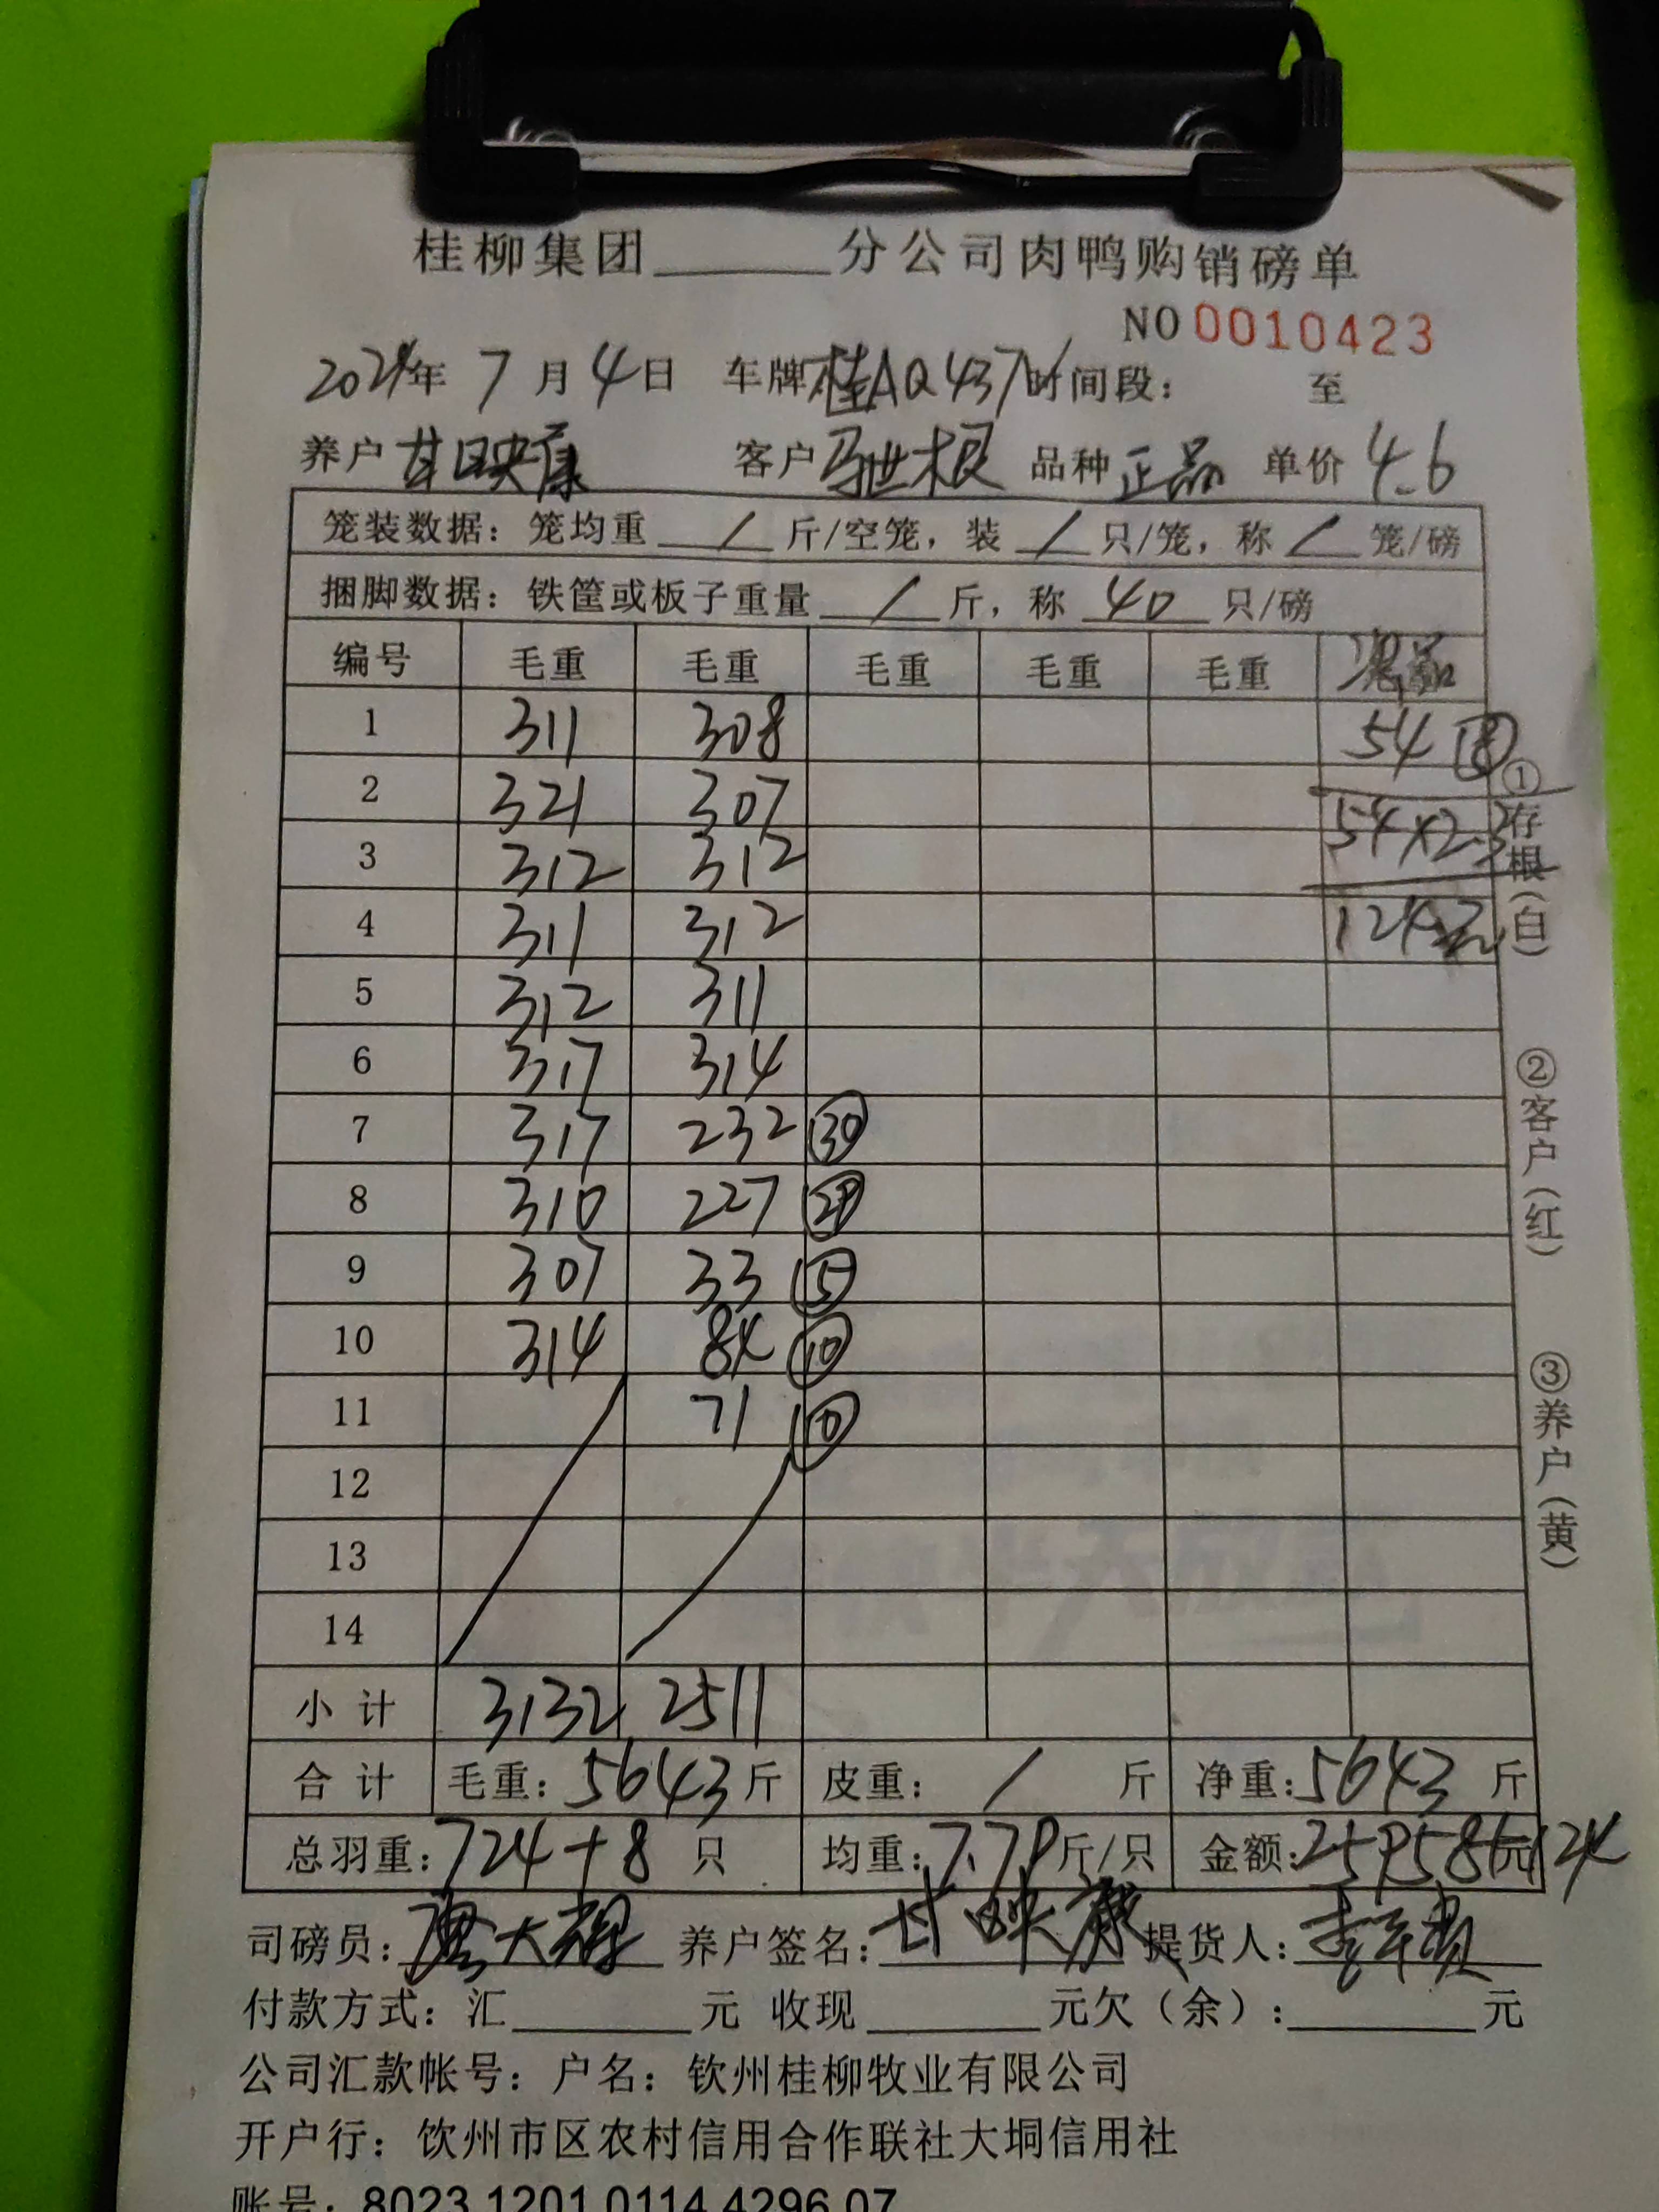 桂柳集团______分公司肉鸭购销磅单
NO 0010423
2024年 7 月 4 日 车牌 桂AQ437 时间段： 至
养户 甘映康 客户 世根 品种 正品 单价 4.6
笼装数据：笼均重 / 斤/空笼，装 / 只/笼，称 / 笼/磅
捆脚数据：铁筐或板子重量 / 斤，称 40 只/磅
编号 毛重 毛重 毛重 毛重 毛重
1 311 308 54 ⑧
2 321 307 54×2.3
3 312 312
4 311 312 124元
5 312 311
6 317 314
7 317 232 ㉚
8 310 227 ㉙
9 307 33 ⑤
10 314 84 ⑩
11 71 ⑩
12
13
14
小 计 3132 2511
合 计 毛重：5643 斤 皮重： / 斤 净重：5643 斤
总羽重：724+8 只 均重：7.79 斤/只 金额：25958元+124
司磅员： 大 养户签名：甘映康 提货人：李
付款方式：汇______元 收现______元欠（余）：______元
公司汇款帐号：户名：钦州桂柳牧业有限公司
开户行：钦州市区农村信用合作联社大垌信用社
账号：8023 1201 0114 4296 07
①存根（白）
②客户（红）
③养户（黄）